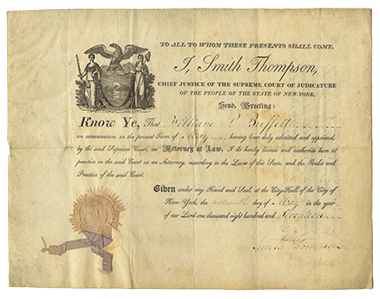 TO ALL TO WHOM THESE PRESENTS SHALL COME.
I, Smith Thompson,
CHIEF JUSTICE OF THE SUPREME COURT OF JUDICATURE
OF THE PEOPLE OF THE STATE OF NEW-YORK,
Send, Greeting:
Know Ye, That William P Buffett
on examination, in the present Term of May having been duly admitted and approved
by the said Supreme Court, as Attorney at Law, I do hereby license and authorise him to
practice in the said Court as an Attorney, according to the Laws of this State, and the Rules and
Practice of the said Court.
Given under my Hand and Seal, at the City-Hall of the City of
New-York, the day of May in the year
of our Lord one thousand eight hundred and
Smith Thompson